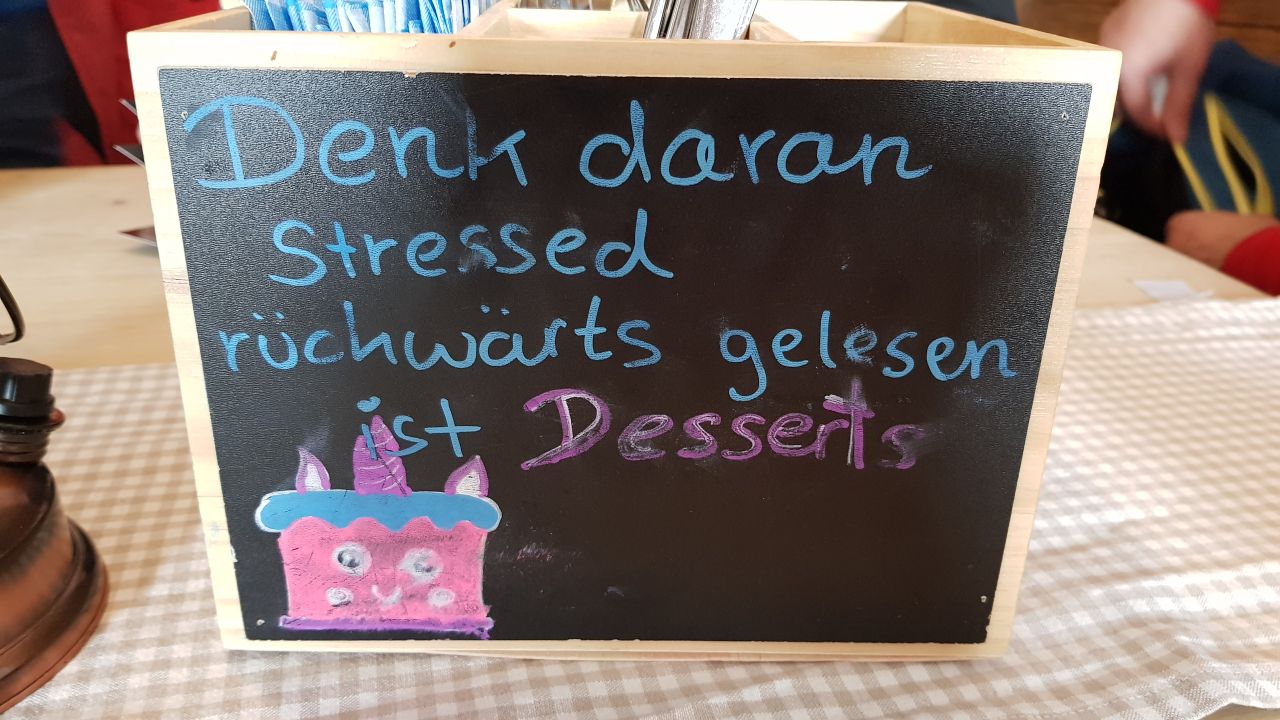 Denk daran
stressed
rüchwärts gelesen
ist Desserts